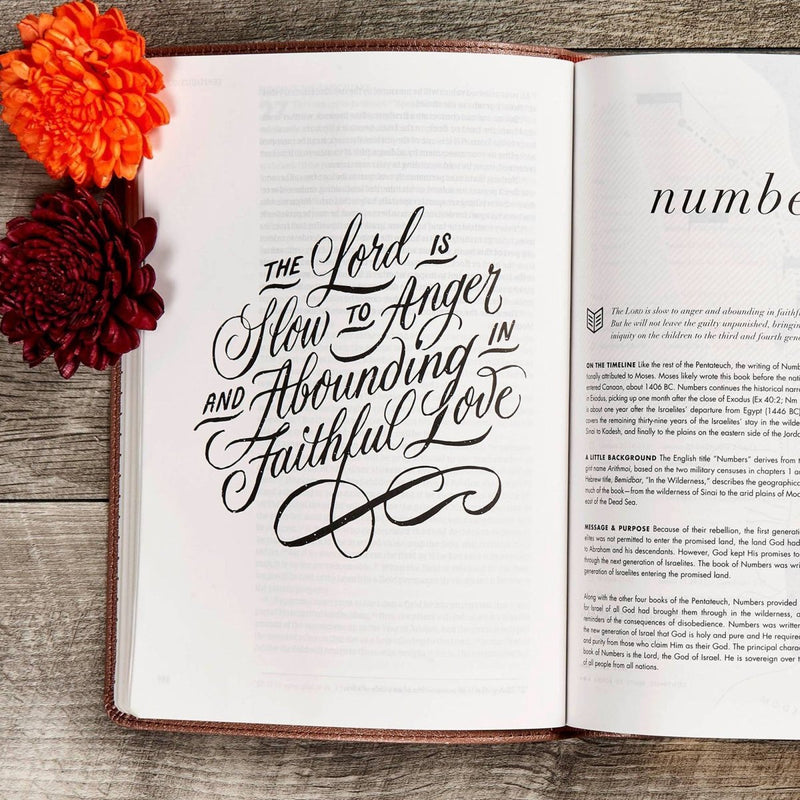 THE Lord IS
Slow TO Anger
AND Abounding IN
Faithful Love
numbe
The LORD is slow to anger and abounding in faithf
But he will not leave the guilty unpunished, bringin
iniquity on the children to the third and fourth gene
ON THE TIMELINE Like the rest of the Pentateuch, the writing of Numb
tionally attributed to Moses. Moses likely wrote this book before the nati
entered Canaan, about 1406 BC. Numbers continues the historical narr
in Exodus, picking up one month after the close of Exodus (Ex 40:2; Nm
is about one year after the Israelites' departure from Egypt (1446 BC)
covers the remaining thirty-nine years of the Israelites' stay in the wilde
Sinai to Kadesh, and finally to the plains on the eastern side of the Jorda
A LITTLE BACKGROUND The English title "Numbers" derives from t
gint name Arithmoi, based on the two military censuses in chapters 1 a
Hebrew title, Bemidbar, "In the Wilderness," describes the geographica
much of the book—from the wilderness of Sinai to the arid plains of Moa
east of the Dead Sea.
MESSAGE & PURPOSE Because of their rebellion, the first generatio
elites was not permitted to enter the promised land, the land God had
to Abraham and his descendants. However, God kept His promises to
through the next generation of Israelites. The book of Numbers was wri
generation of Israelites entering the promised land.
Along with the other four books of the Pentateuch, Numbers provided
for Israel of all God had brought them through in the wilderness, a
reminders of the consequences of disobedience. Numbers was written
the new generation of Israel that God is holy and pure and He require
and purity from those who claim Him as their God. The principal chara
book of Numbers is the Lord, the God of Israel. He is sovereign over t
of all people from all nations.